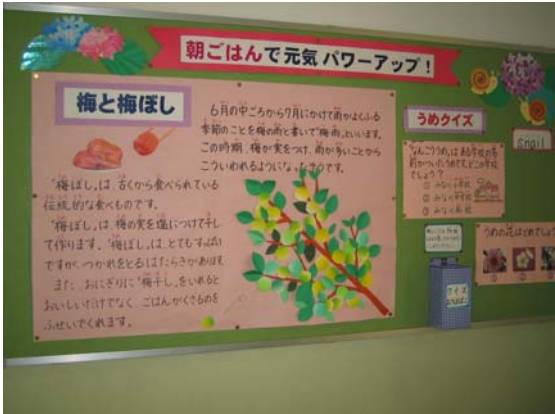 朝ごはんで元気パワーアップ!
梅と梅ぼし
6月の中ごろから7月にかけて雨がよくふる
季節のことを梅の雨と書いて“梅雨„といいます。
この時期、梅が実をつけ、雨が多いことから
こういわれるようになったそうです。
“梅ぼし„は、古くから食べられている
伝統的な食べものです。
“梅ぼし„は、梅の実を塩につけて干し
て作ります。“梅ぼし„は、とてもすっぱい
ですが、つかれをとるはたらきがあります。
また、おにぎりに“梅干し„をいれると
おいしいだけでなく、ごはんがくさるのを
ふせいでくれます。
うめクイズ
“なんこううめ„は、ある学校の名
前がついたうめです。どこの学校
でしょう?
①
②
③
snail
うめの花はどれでしょう
①
②
クイズ